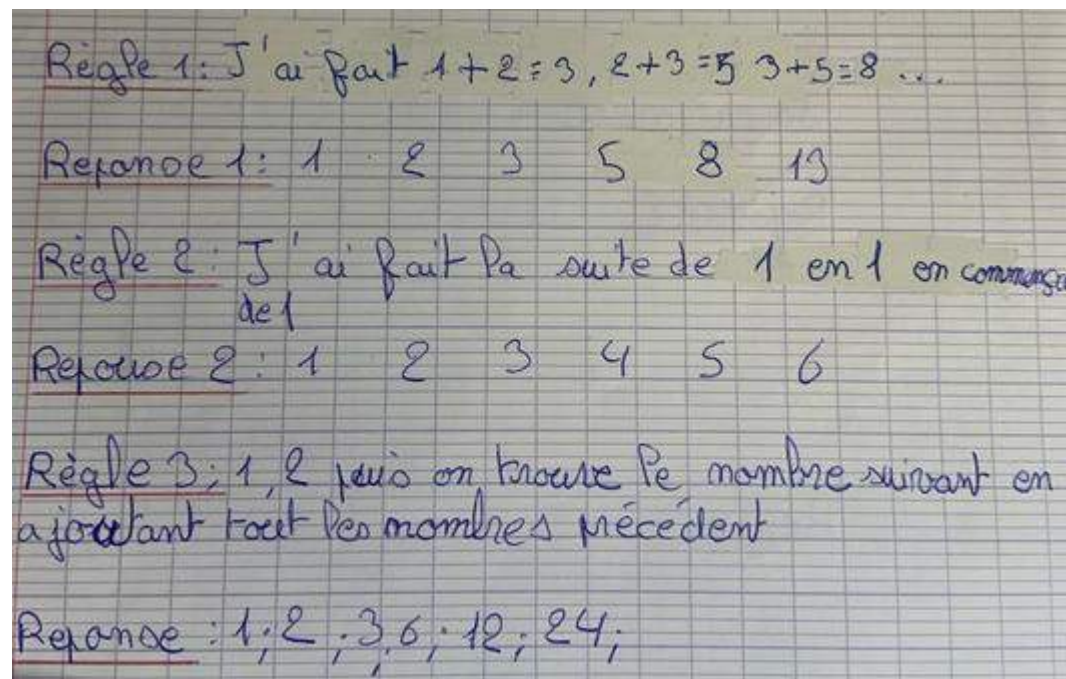 Règle 1: J'ai fait 1+2=3, 2+3=5 3+5=8 ...
Reponse 1: 1 2 3 5 8 13
Règle 2: J'ai fait la suite de 1 en 1 en commença
de 1
Reponse 2: 1 2 3 4 5 6
Règle 3: 1, 2 puis on trouve le nombre suivant en
ajoutant tout les nombres précédent
Reponse : 1; 2; 3; 6; 12; 24;